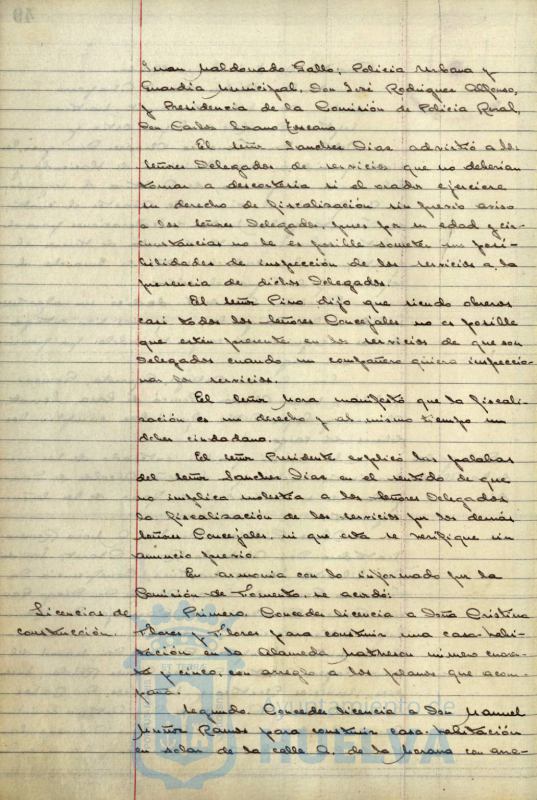 Juan Maldonado Gallo; Policía Urbana y
Guardia Municipal, Don José Rodriguez Alfonso,
y Presidencia de la Comisión de Policía Rural,
Don Carlos Lozano Toscano.
El señor Sanchez Dias advirtió a los
señores Delegados de servicios que no deberían
tomar a descortesía si el orador ejerciere
su derecho de fiscalización sin previo aviso
a los señores Delegados, pues por su edad y cir-
cunstancias no le es posible someter sus posi-
bilidades de inspección de los servicios a la
presencia de dichos Delegados.
El señor Pino dijo que siendo obreros
casi todos los señores Concejales no es posible
que estén presente en los servicios de que son
Delegados cuando un compañero quiera inspeccio-
nar los servicios.
El señor Mora manifestó que la fiscali-
zación es un derecho y al mismo tiempo un
deber ciudadano.
El señor Presidente explicó las palabras
del señor Sanchez Dias en el sentido de que
no implica molestia a los señores Delegados
la fiscalización de los servicios por los demás
señores Concejales, ni que esta se verifique sin
anuncio previo.
En armonia con lo informado por la
Comisión de Fomento, se acordó:
Licencias de construcción.
Primero. Conceder licencia a Doña Cristina
Flores y Flores para construir una casa habi-
tación en la Alameda número cuaren-
ta y cinco, con arreglo a los planos que acom-
paña.
Segundo. Conceder licencia a Don Manuel
Muñoz Ramos para construir casa-habitación
en solar de la calle A. de la Morana con arre-
Ayuntamiento de
HUELVA